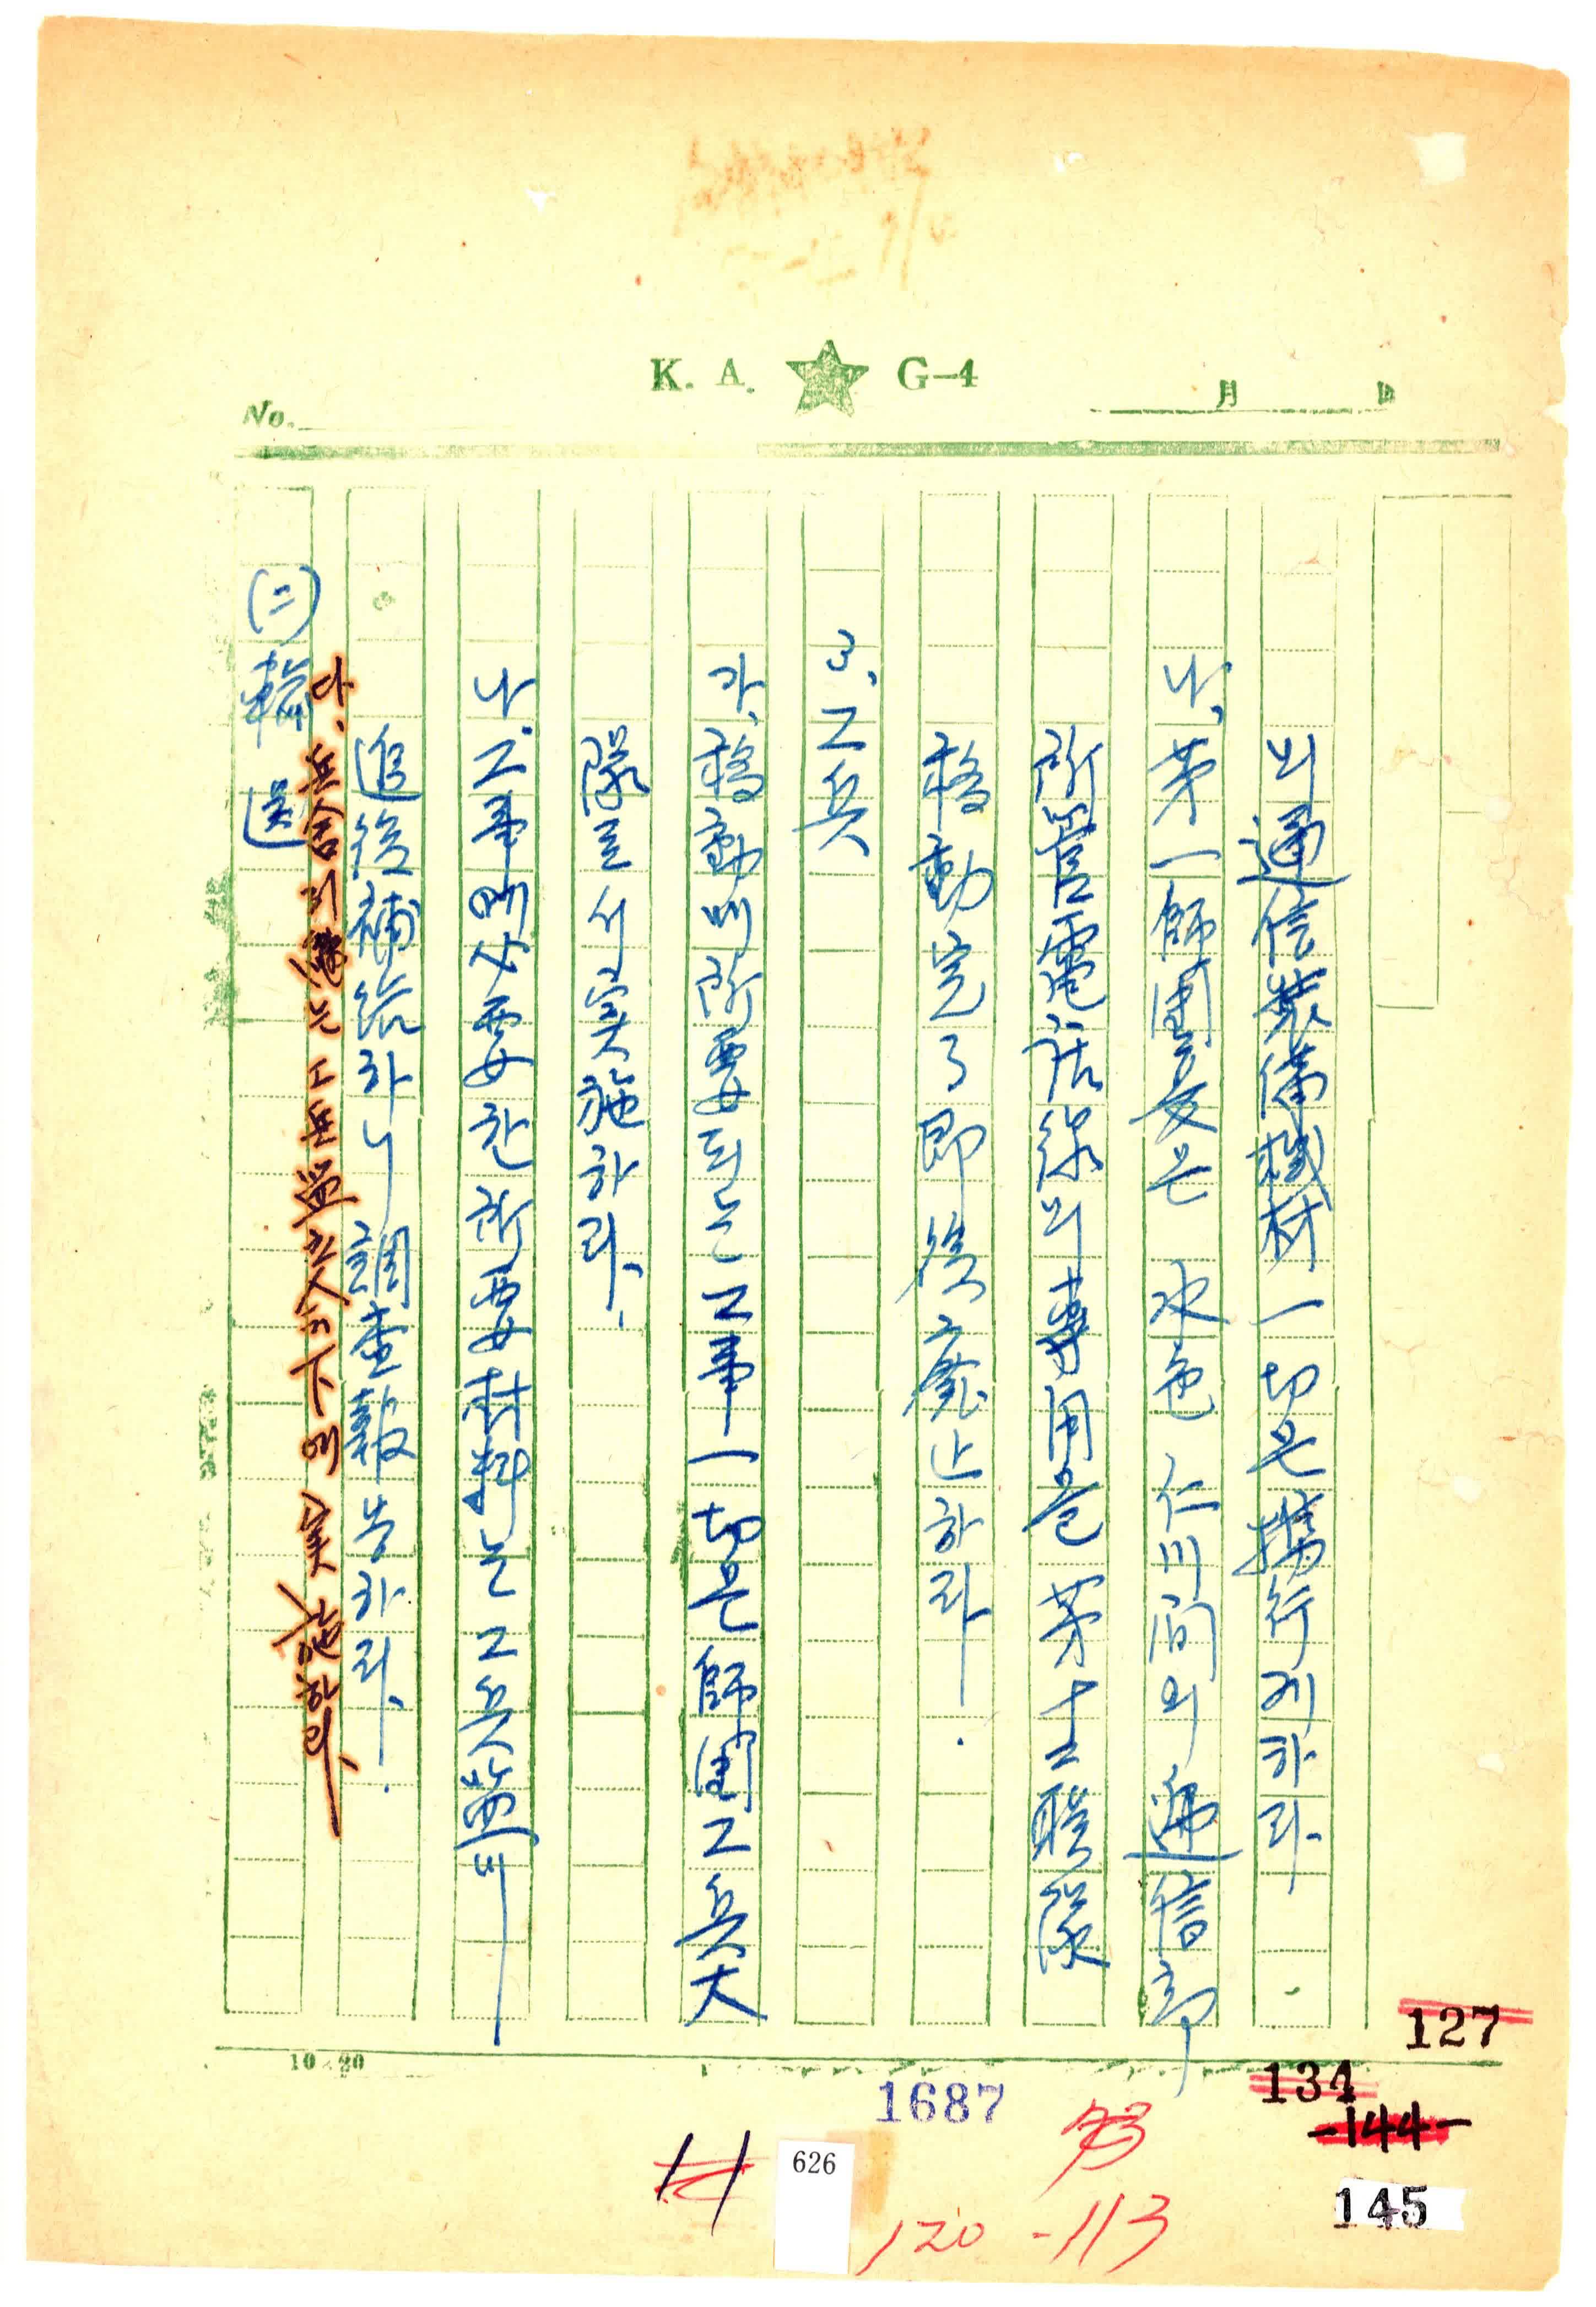 K. A. ★ G-4
No.
月 日
의 通信裝備機材 一切은 携行케하라
나、第一師團長은 水色 仁川间의 通信部
所管電話線의 専用을 第十二聯隊
移動完了即後 廃止하라.
3、工兵
가、移動에 所要되는 工事一切은 師團工兵大
隊로서 実施하라、
나、工事에 必要한 所要材料는 工兵監이
追後補給하니 調査報告하라.
다、兵舍의 는 工兵監 下에 実施하라、
(二) 輸送
10×20
1687
127
134
-144-
145
626
120 -113